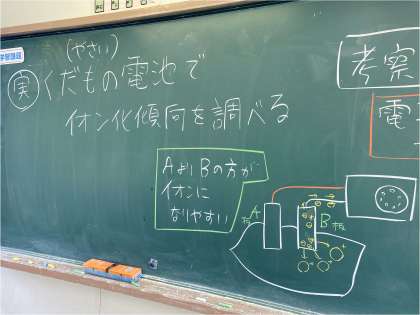 学習課題
(やさい)
実 くだもの電池で
イオン化傾向を調べる
AよりBの方が
イオンに
なりやすい
考察
電
A
板
B板